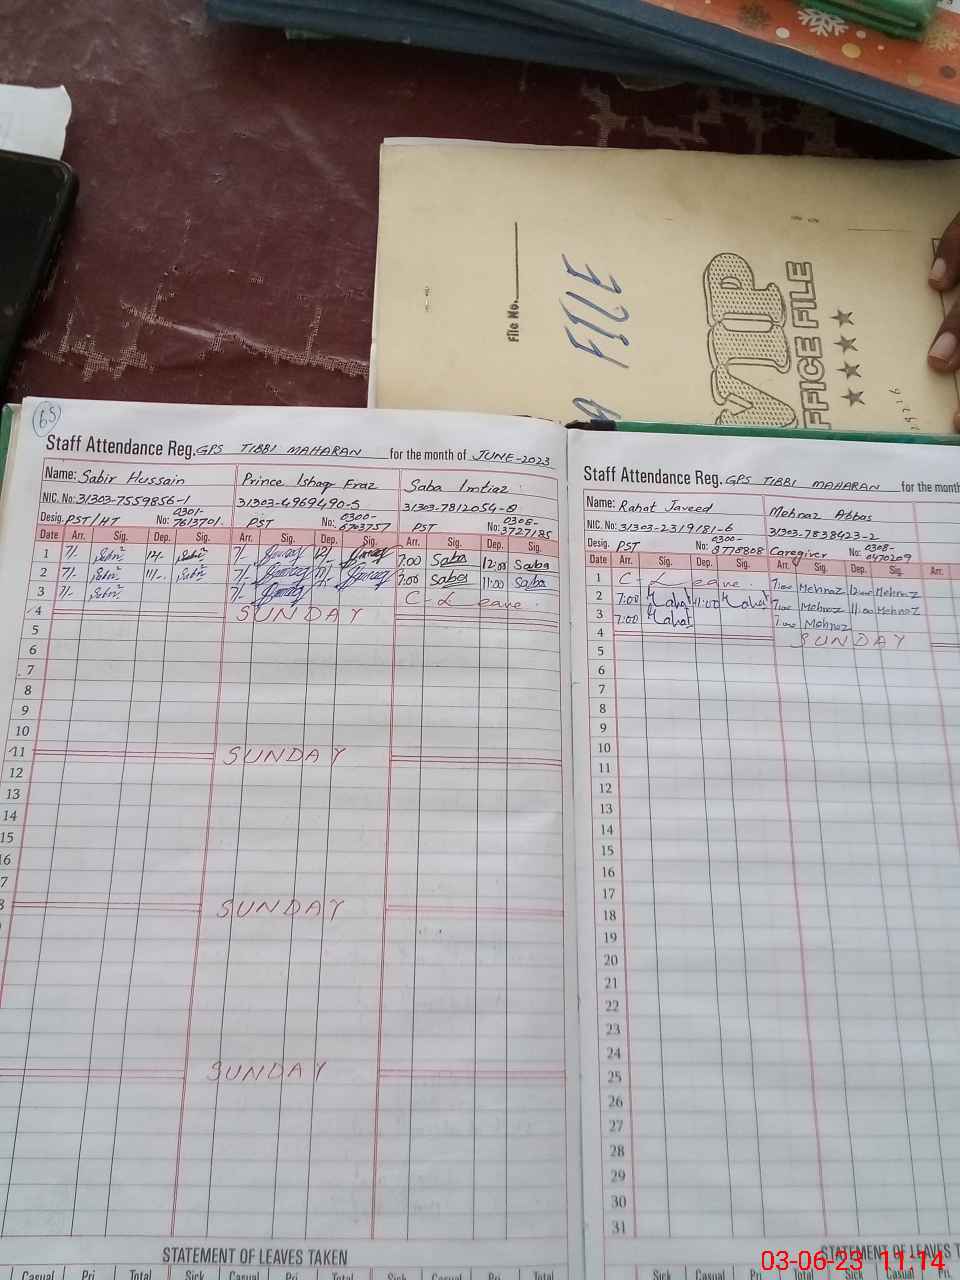 File No.
FILE
OFFICE FILE
65
Staff Attendance Reg. GPS TIBBI MAHARAN for the month of JUNE-2023
Name: Sabir Hussain Prince Ishaq Fraz Saba Imtiaz
NIC. No: 31303-7559856-1 31303-4969490-5 31303-7812054-8
Desig. PST/HT No: 0301-7613701 PST No: 0300-6703757 PST No: 0308-3727185
Date Arr. Sig. Dep. Sig. Arr. Sig. Dep. Sig. Arr. Sig. Dep. Sig.
1 7/- Sabir 12/- Sabir 7/- 12/- 7:00 Saba 12:00 Saba
2 7/- Sabir 11/- Sabir 7/- 11/- 7:00 Saba 11:00 Saba
3 7/- Sabir 7/- C-Leave.
4 SUNDAY
5
6
7
8
9
10
11 SUNDAY
12
13
14
15
16
17
18 SUNDAY
SUNDAY
STATEMENT OF LEAVES TAKEN
Casual Pri Total Sick Casual Pri. Total Sick Casual Pri. Total
Staff Attendance Reg. GPS TIBBI MAHARAN for the month
Name: Rahat Javeed Mehnaz Abbas
NIC. No: 31303-2319181-6 31303-7838423-2
Desig. PST No: 0300-8778808 Caregiver No: 0308-0470209
Date Arr. Sig. Dep. Sig. Arr. Sig. Dep. Sig. Arr.
1 C-Leave. 7:00 Mehnaz 12:00 Mehnaz
2 7:00 Rahat 11:00 Rahat 7:00 Mehnaz 11:00 Mehnaz
3 7:00 Rahat 7:00 Mehnaz
4 SUNDAY
5
6
7
8
9
10
11
12
13
14
15
16
17
18
19
20
21
22
23
24
25
26
27
28
29
30
31
STATEMENT OF LEAVES T
Sick Casual Pri. Total Sick Casual Pri
03-06-23 11:14